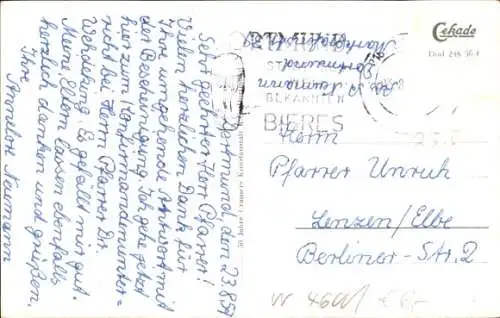 Dortmund, den 23.8.59
Sehr geehrter Herr Pfarrer!
Vielen herzlichen Dank für
Ihre umgehende Antwort mit
der Bescheinigung. Ich gehe jetzt
hier zum Konfirmandenunter=
richt bei Herrn Pfarrer Dr.
Wehdeking. Es gefällt mir gut.
Meine Eltern lassen ebenfalls
herzlich danken und grüßen.
Ihre
Annelore Neumann
50 Jahre Cramers Kunstanstalt
Cekade
Dortmund
BEKANNTEN
BIERES
Herrn
Pfarrer Unruh
Lenzen/Elbe
Berliner-Str. 2